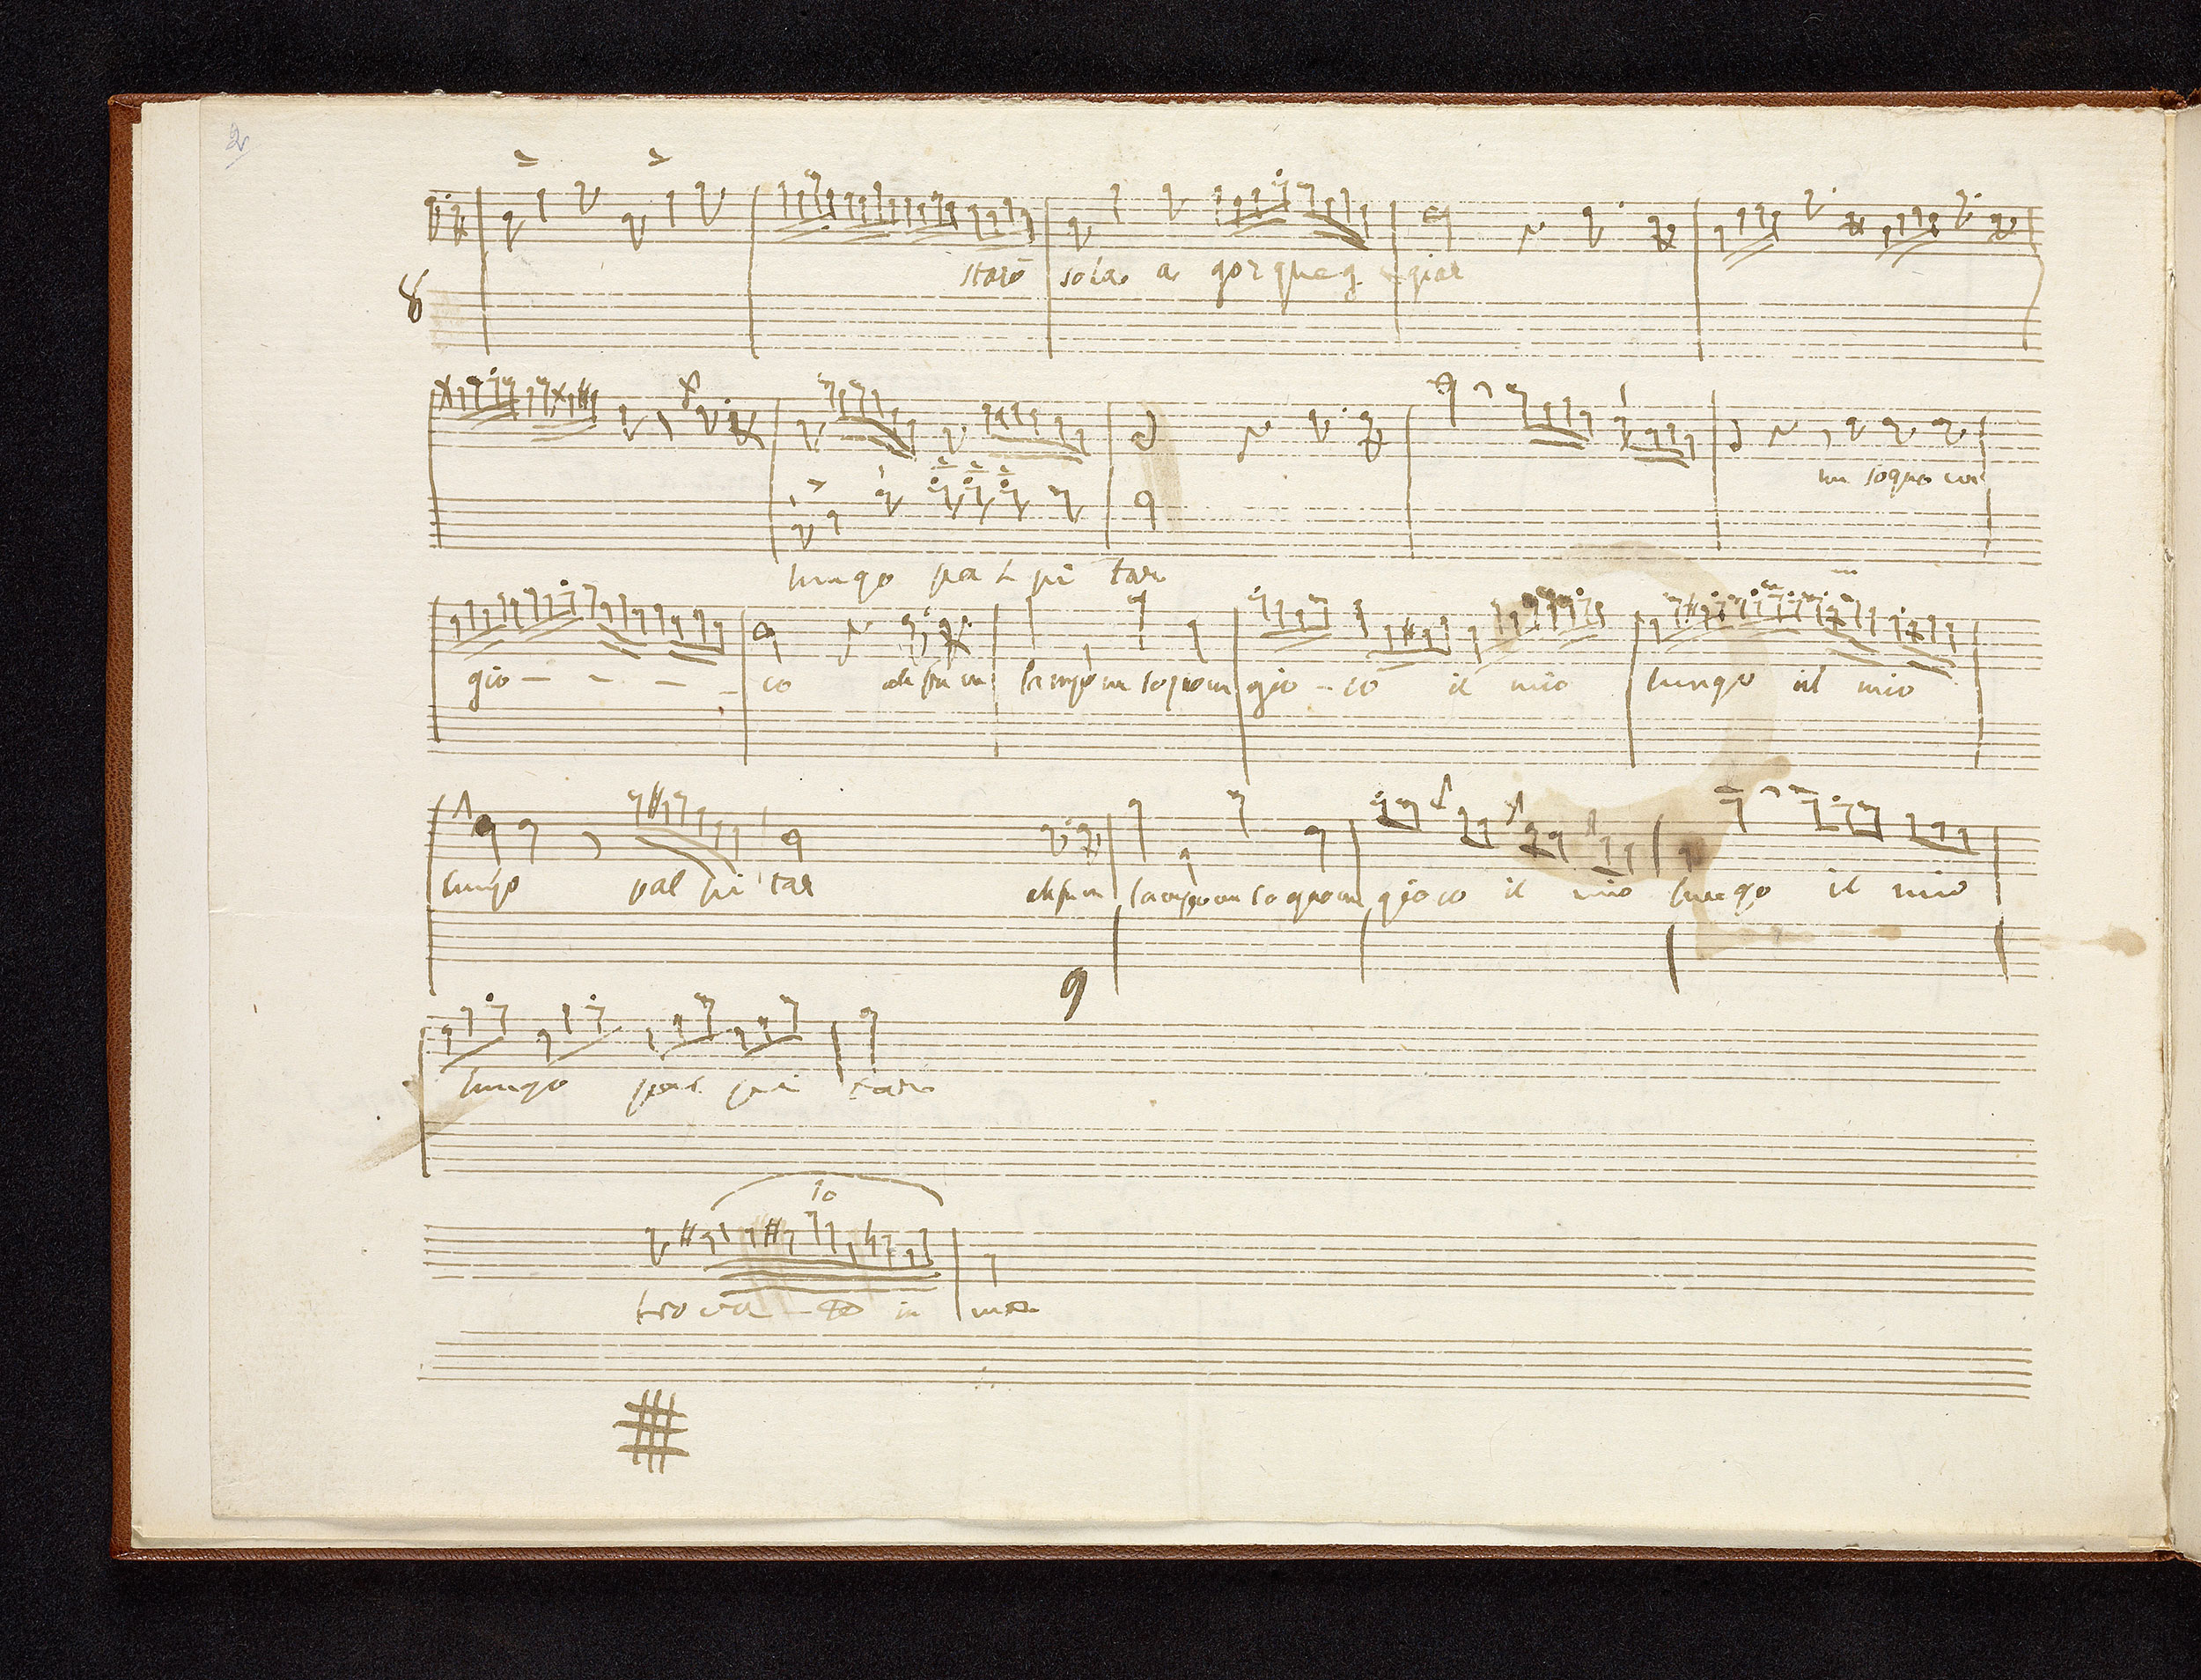 2
starò sola a gorgheg giar
8
un sogno un
lungo pal pi tar
gio - - - - co di fu un lampo un sogno un gio - co il mio lungo il mio
lungo pal pi tar di fu un lampo un sogno un gioco il mio lungo il mio
9
lungo pal pi tar
10
trova in